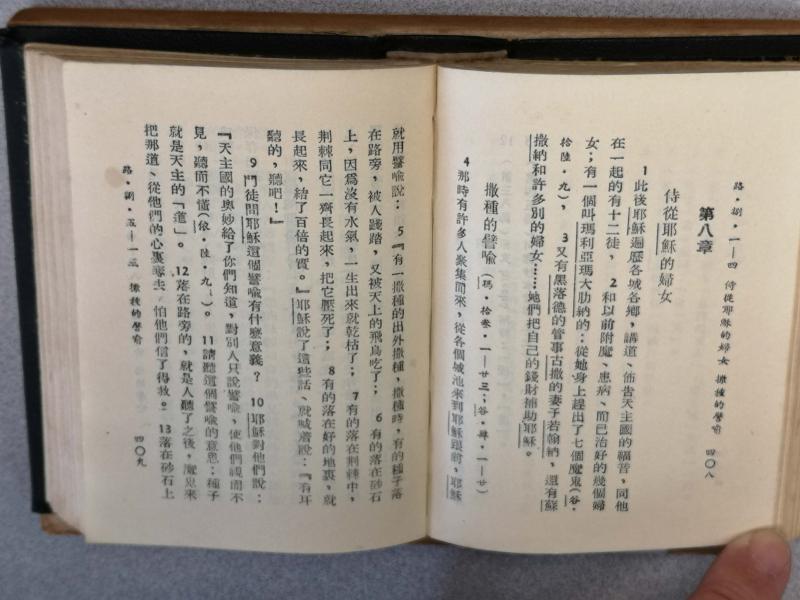 路·捌·一—四 侍從耶穌的婦女 撒種的譬喻 四〇八
第八章
侍從耶穌的婦女
1此後耶穌遍歷各城各鄉，講道、佈告天主國的福音，同他
在一起的有十二徒， 2和以前附魔、患病、而已治好的幾個婦
女；有一個叫瑪利亞瑪大肋納的：從她身上趕出了七個魔鬼（谷·
拾陸·九）， 3又有黑落德的管事古撒的妻子若翰納，還有蘇
撒納和許多別的婦女……她們把自己的錢財補助耶穌。
撒種的譬喻（瑪·拾叁·一—廿三；谷·肆·一—廿）
4那時有許多人聚集而來，從各個城池來到耶穌跟前，耶穌
就用譬喻說： 5『有一撒種的出外撒種，撒種時，有的種子落
在路旁，被人踐踏，又被天上的飛鳥吃了； 6有的落在砂石
上，因爲沒有水氣，一生出來就乾枯了； 7有的落在荆棘中，
荆棘同它一齊長起來，把它壓死了； 8有的落在好的地裏，就
長起來，結了百倍的實。』耶穌說了這些話、就喊着說：『有耳
聽的，聽吧！』
9門徒問耶穌這個譬喻有什麽意義？ 10耶穌對他們說：
『天主國的奧妙給了你們知道，對別人只說譬喻，使他們視而不
見，聽而不懂（依·陸·九、）。 11請聽這個譬喻的意思：種子
就是天主的「道」。 12落在路旁的，就是人聽了之後，魔鬼來
把那道、從他們的心裏奪去，怕他們信了得救。 13落在砂石上
路·捌·五—十三 撒種的譬喻 四〇九